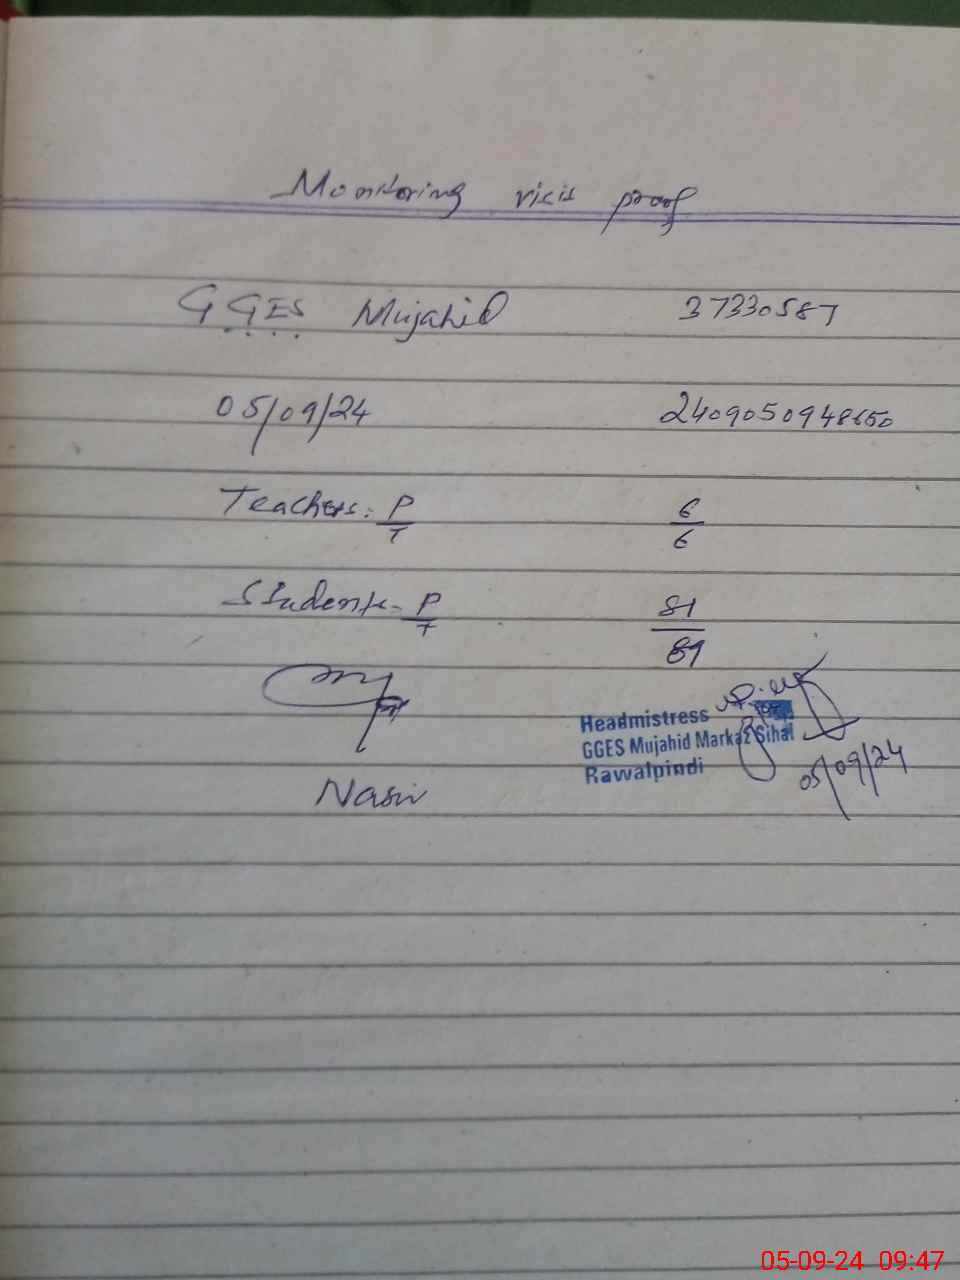 Monitoring visit proof
GGES Mujahid 37330587
05/09/24 2409050948650
Teachers: P/T 6/6
Students - P/T 81/81
Headmistress
GGES Mujahid Markaz Sihal
Rawalpindi
05/09/24
Nasir
05-09-24 09:47